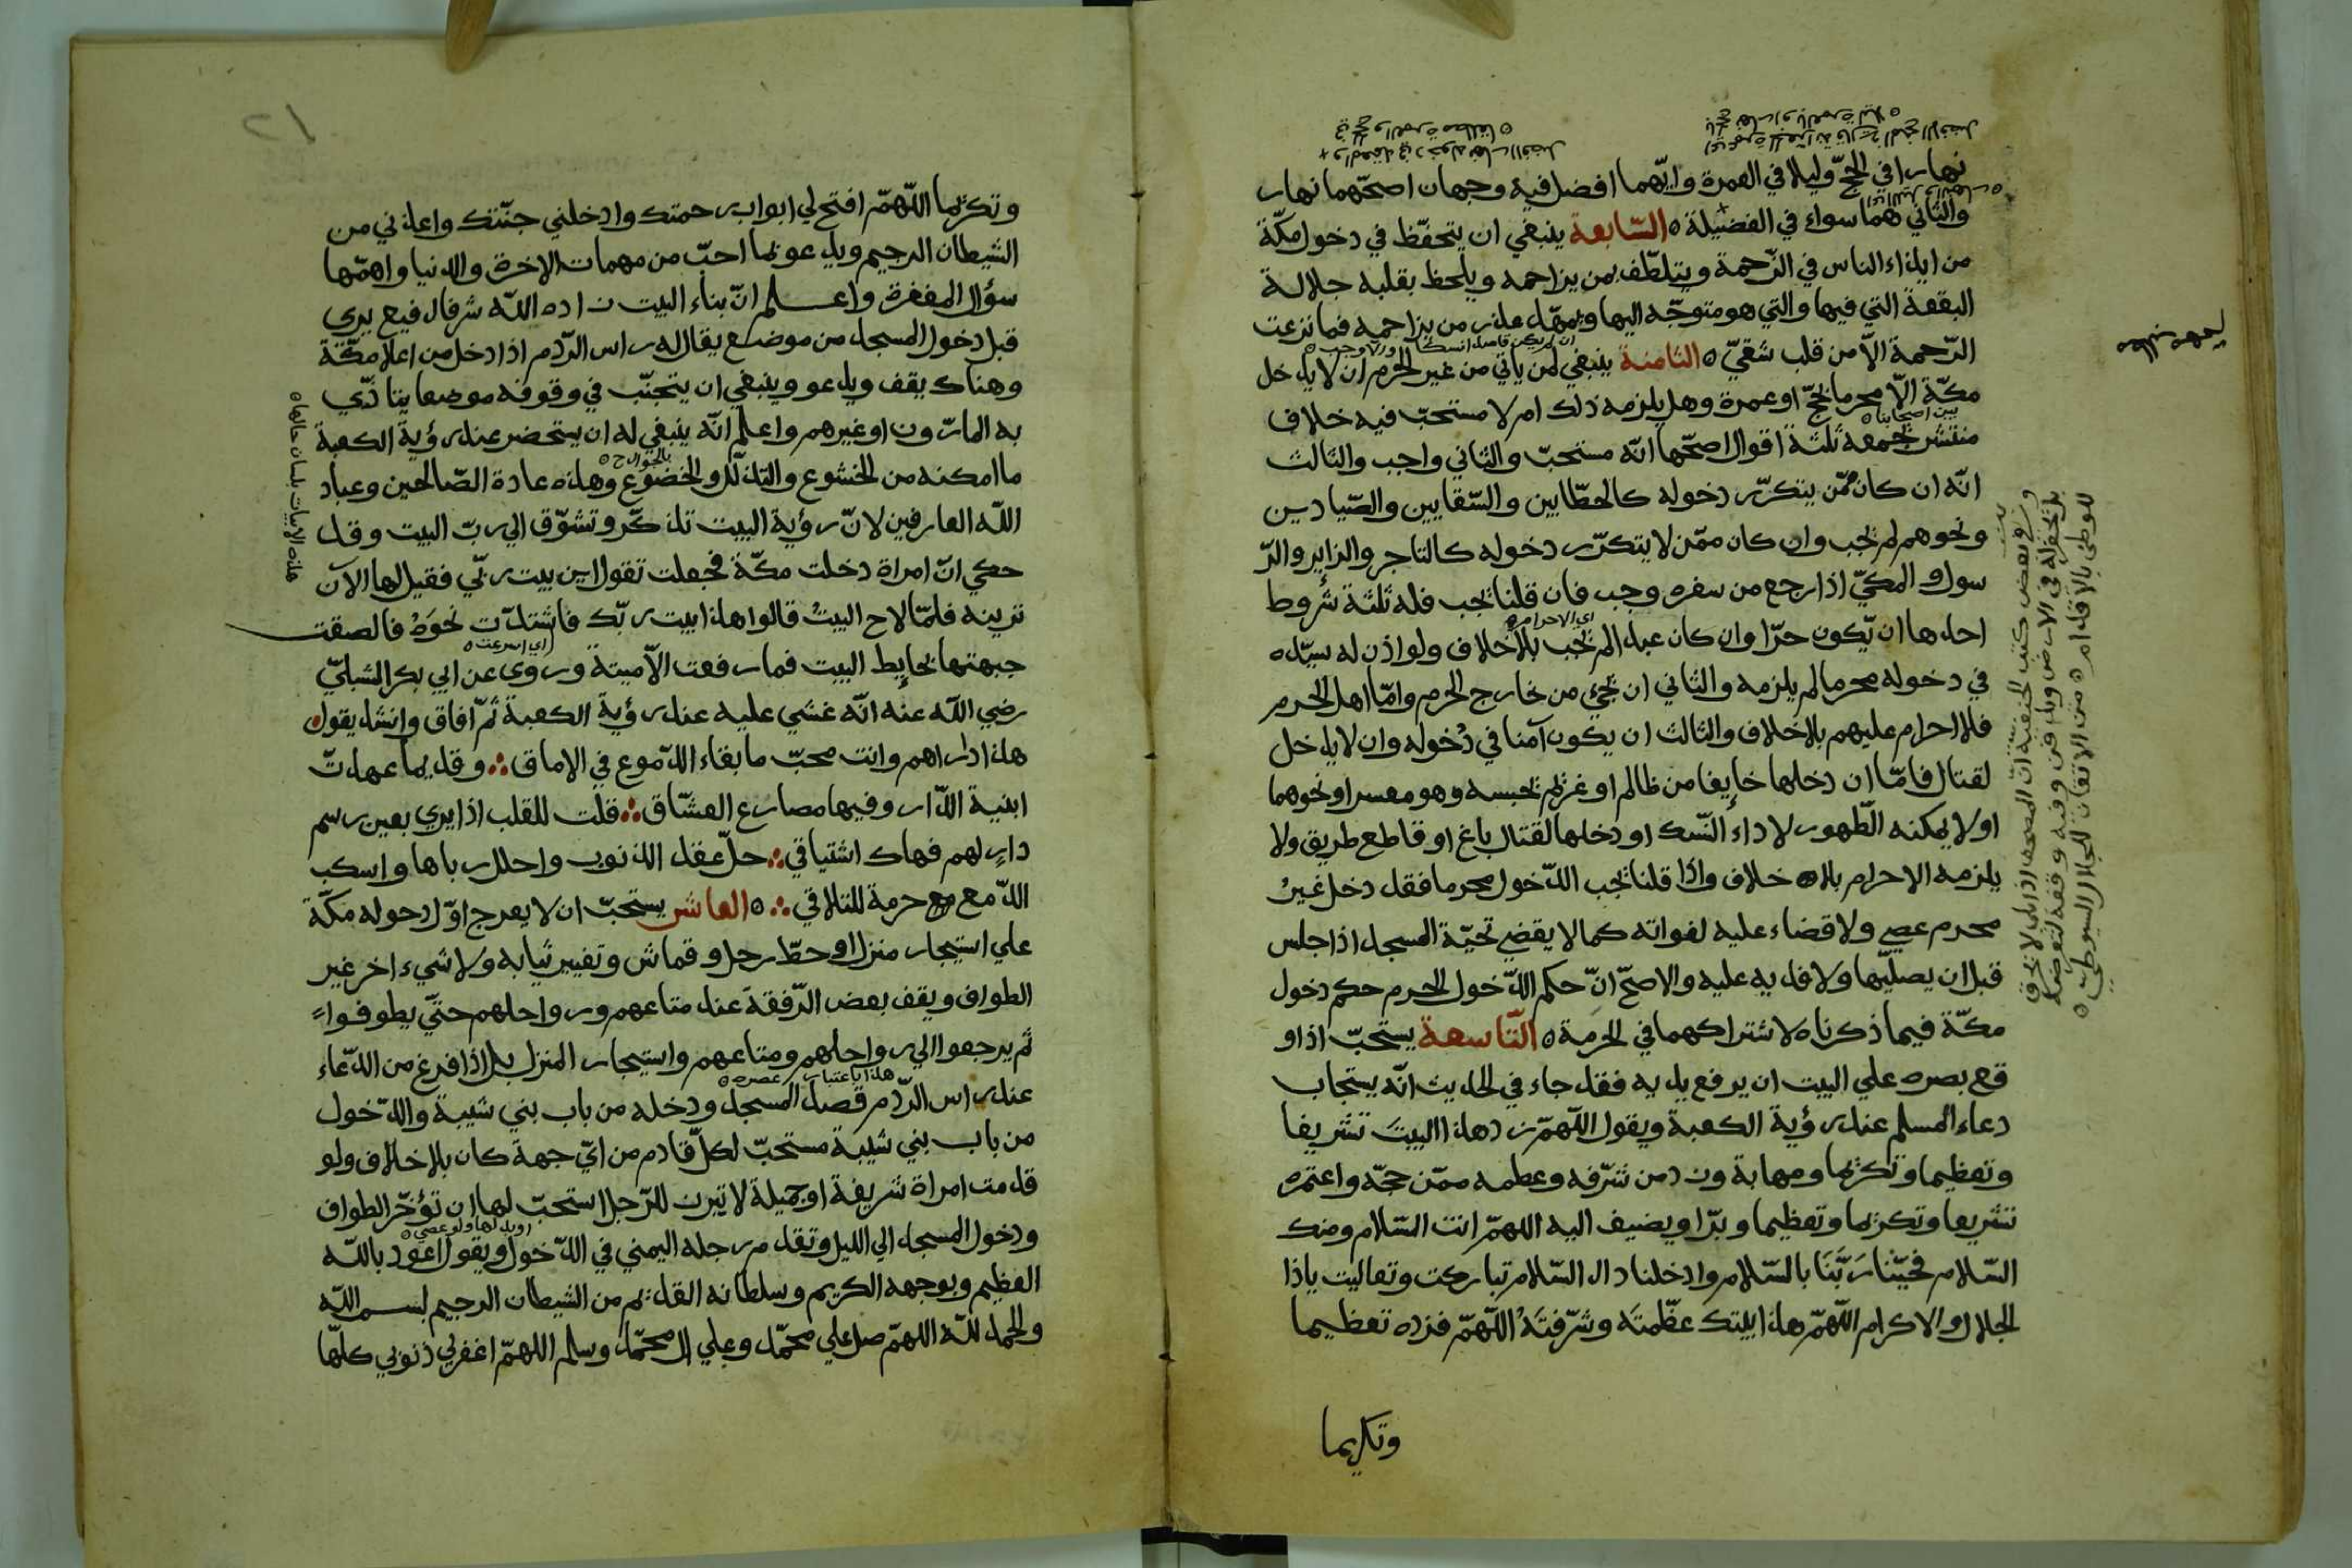 نهارا في الحجّ وليلا في العمرة وايّهما افضل فيه وجهان اصحّهما نهار
والثاني هما سواء في الفضيلة ه السّابعة ينبغي ان يتحفّظ في دخول مكّة
من ايذاء الناس في الزّحمة ويتلطّف بمن يزاحمه ويلحظ بقلبه جلالة
البقعة التي فيها والتي هو متوجّه اليها ويمهّد عذر من يزاحمه فما نزعت
الرّحمة الاّ من قلب شقيّ ه الثامنة ينبغي لمن ياتي من غير الحرم ان لا يدخل
مكّة الاّ محرما بحّج او عمرة وهل يلزمه ذلك ام لا مستحبّ فيه خلاف
بين اصحابنا ه
منتشر بجمعه ثلثة اقوال اصحّها انّه مستحبّ والثاني واجب والثالث
انّه ان كان ممّن يتكرّر دخوله كالحطّابين والسّقايين والصّيادين
ونحوهم لم يجب وان كان ممّن لا يتكرّر دخوله كالتاجر والزاير والرّ
سول والمكيّ اذا رجع من سفره وجب فان قلنا يجب فله ثلثة شروط
اي الاحرام ه
احدها ان يكون حرّا وان كان عبدا لم يجب بلا خلاف ولو اذن له سيّده
في دخوله محرما لم يلزمه والثاني ان يجيء من خارج الحرم وامّا اهل الحرم
فلا احرام عليهم بلا خلاف والثالث ان يكون آمنا في دخوله وان لا يدخل
لقتال فامّا ان دخلها خايفا من ظالم او غريم يحبسه وهو معسر او نحوهما
او لا يمكنه الظهور لاداء النّسك او دخلها لقتال باغ او قاطع طريق ولا
يلزمه الاحرام بلا خلاف واذا قلنا يجب الدّخول محرما فقد دخل غير
محرم عصي ولا قضاء عليه لفواته كما لا يقضي تحيّة المسجد اذا جلس
قبل ان يصليّها ولا فديه عليه والاصحّ انّ حكم الدّخول الحرم حكم دخول
مكّة فيما ذكرناه لاشتراكهما في الحرمة ه التّاسعة يستحبّ اذا و
قع بصره علي البيت ان يرفع يديه فقد جاء في الحديث انّه يستجاب
دعاء المسلم عند رؤية الكعبة ويقول اللّهمّ زد هذا البيت تشريفا
وتعظيما وتكريما ومهابة وزد من شرّفه وعطمه ممّن حجّه واعتمره
تشريفا وتكريما وتعظيما وبرّا ويضيف اليه اللهمّ انت السّلام ومنك
السّلام فحيّنا رَبَّنَا بالسّلام وادخلنا دار السّلام تباركت وتعاليت ياذا
الجلال والاكرام اللّهمّ هذا بيتك عظّمتَه وشرّفتَهُ اللّهمّ فزده تعظيما
وتكريما
وفي بعض كتب الحنفية انّ المصحف اذا بلي لا يحرق
بل يحفر له في الارض ويدفن وفيه وقفة لتعرضه
للوطئ بالاقدام ه من الاتقان للجلال السيوطي ه
وتكريما اللّهمّ افتح لي ابواب رحمتك وادخلني جنّتك واعذني من
الشيطان الرجيم ويدعو بما احبّ من مهمات الاخرة والدنيا واهمّها
سؤال المغفرة واعلم انّ بناء البيت زاده اللّه شرفا رفيع يري
قبل دخول المسجد من موضع يقال له راس الرّدم اذا دخل من اعلا مكّة
وهناك يقف ويدعو وينبغي ان يتجنّب في وقوفه موضعا يتاذّي
به المارّون او غيرهم واعلم انّه ينبغي له ان يستحضر عند رؤية الكعبة
بالجوارح ه
ما امكنه من الخشوع والتذلّل والخضوع وهذه عادة الصّالحين وعباد
اللّه العارفين لانّ رؤية البيت تذكّر وتشوّق الي ربّ البيت وقد
حكي انّ امراة دخلت مكّة فجعلت تقول اين بيت ربّي فقيل لها الآن
ترينه فلمّا لاح البيتُ قالوا هذا بيت ربّك فاشتدّت نحوَهُ فالصقت
اي اسرعت ه
جبهتها بحايط البيت فما رفعت الاّ ميتة وروي عن ابي بكر الشبليّ
رضي اللّه عنه انّه غشي عليه عند رؤية الكعبة ثمّ افاق وانشد يقول
هذا دارهم وانت محبّ ما بقاء الدّموع في الاماق ∴ وقديما عهدتّ
ابنية الدّار وفيها مصارع العشّاق ∴ قلت للقلب اذا يري بعين رسم
دارٍ لهم فهاك اشتياقي ∴ حلّ عقد الذنوب واحلل رباها واسكب
الدّمع مع حرمة للتلاقي ∴ ه العاشر يستحبّ ان لا يعرج اوّل دخوله مكّة
علي استيجار منزل او حطّ رحل وقماش وتغيير ثيابه ولا شيء اخر غير
الطواف ويقف بعض الرّفقة عند متاعهم ورواحلهم حتّي يطوفوا
ثم يرجعوا الي رواحلهم ومتاعهم واستيجار المنزل بل اذا فرغ من الدّعاء
هذا باعتبار عصره ه
عند راس الرّدم قصد المسجد ودخله من باب بني شيبة والدّخول
من باب بني شيبة مستحبّ لكلّ قادم من ايّ جهة كان بلا خلاف ولو
قدمت امراة شريفة او جميلة لا تبرن للرّجل استحبّ لها ان تؤخّر الطواف
ودخول المسجد الي الليل وتقدم رجله اليمني في الدّخول ويقول اعوذ باللّه
العظيم وبوجهه الكريم وسلطانه القديم من الشيطان الرجيم بسم اللّه
والحمد للّه اللهمّ صل علي محمّد وعلي ال محمّد وسلم اللهمّ اغفر لي ذنوبي كلّها
هذه الابيات بلسان حالها ه
٢١